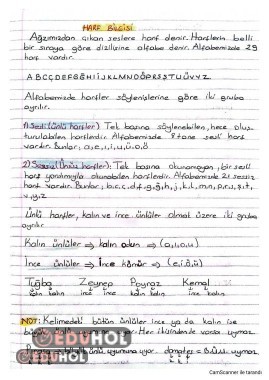 HARF BİLGİSİ
Ağzımızdan çıkan seslere harf denir. Harflerin belli
bir sıraya göre dizilirine alfabe denir. Alfabemizde 29
harf vardır.
A B C Ç D E F G Ğ H I İ J K L M N O Ö P R S Ş T U Ü V Y Z
Alfabemizde harfler söylenişlerine göre iki gruba
ayrılır.
1) Sesli (Ünlü harfler): Tek başına söylenebilen, hece oluş
turulabilen harflerdir. Alfabemizde 8 tane sesli harf
vardır. Bunlar; a, e, ı, i, u, ü, o, ö
2) Sessiz (Ünsüz harfler): Tek başına okunamayan, bir sesli
harf yardımıyla okunabilen harflerdir. Alfabemizde 21 sessiz
harf vardır. Bunlar; b, c, ç, d, f, g, ğ, h, j, k, l, m, n, p, r, s, ş, t,
v, y, z
Ünlü harfler, kalın ve ince ünlüler olmak üzere iki gruba
ayrılır.
Kalın ünlüler ⇒ kalın odun ⇒ (a, ı, o, u)
İnce ünlüler ⇒ İnce kömür ⇒ (e, i, ö, ü)
Tuğba Zeynep Poyraz Kemal
kalın kalın ince ince kalın kalın ince kalın
NOT: Kelimedeki bütün ünlüler ince ya da kalın ise
büyük ünlü uyumuna uyar. Her ikisinden de varsa uymaz.
büyük ünlü uyumuna uyor. domates ⇒ B.ü.u uymaz
EDUHOL
EDUHOL
CamScanner ile tarandı